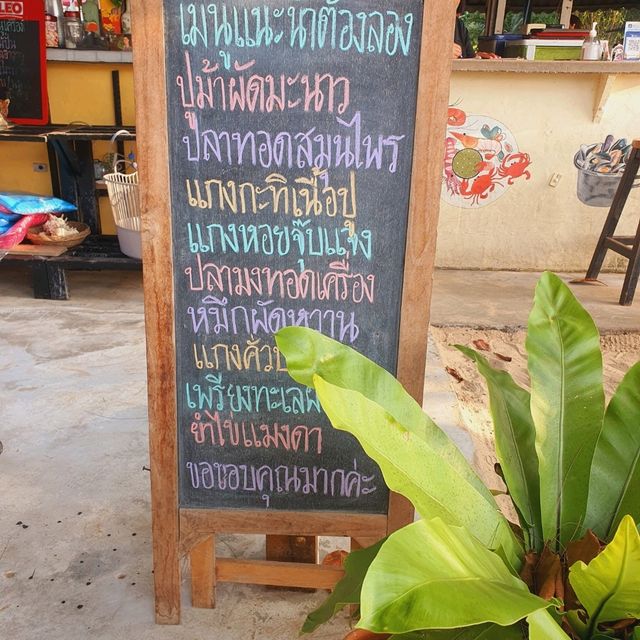 LEO
เมนูแนะนำต้องลอง
ปูม้าผัดมะนาว
ปลาทอดสมุนไพร
แกงกะทิเนื้อปู
แกงหอยจุ๊บแจง
ปลามงทอดเครื่อง
หมึกผัดหวาน
แกงคั่ว
เพรียงทะเล
ยำไข่แมงดา
ขอขอบคุณมากค่ะ